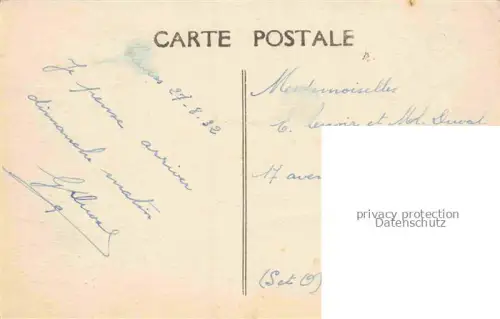 CARTE POSTALE
27-8-32
Je pense arriver
dimanche matin
GDuval
Mesdemoiselles
E. et M. Duval
17 aven
(Set O)
privacy protection
Datenschutz